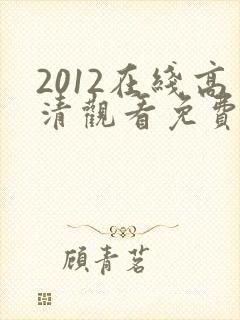 2012在綫高
清觀看免費
顧青茗